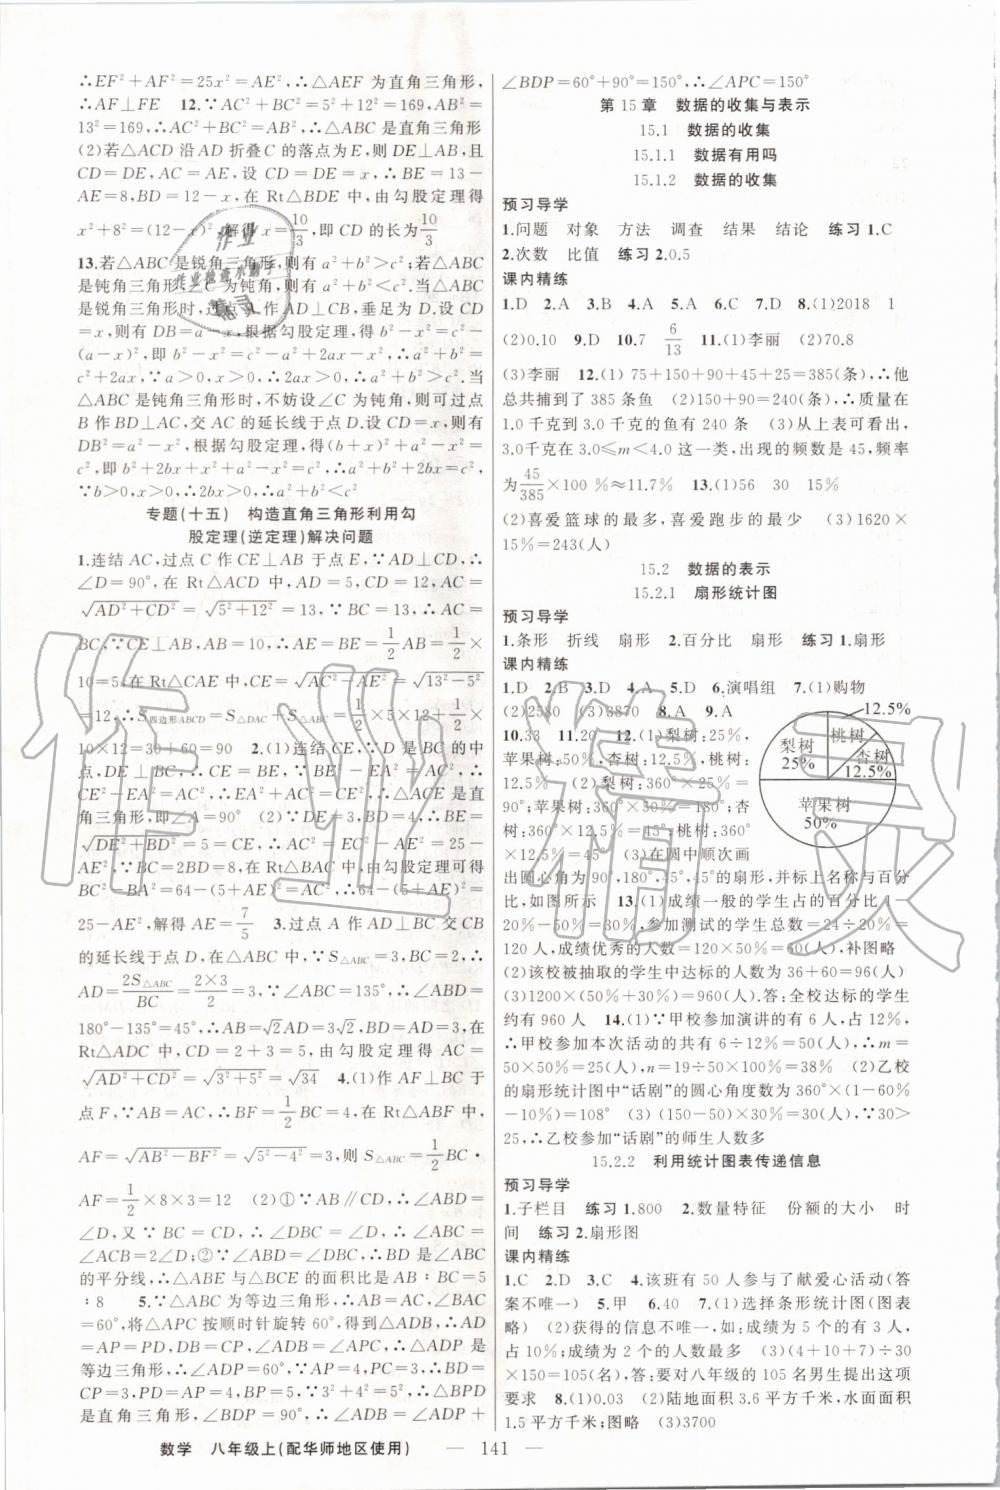 ∴EF²+AF²=25x²=AE²,∴△AEF 为直角三角形,
∴AF⊥FE 12.∵AC²+BC²=5²+12²=169,AB²=
13²=169,∴AC²+BC²=AB²,∴△ABC 是直角三角形
(2)若△ACD 沿 AD 折叠 C 的落点为 E,则 DE⊥AB,且
CD=DE,AC=AE,设 CD=DE=x,∴BE=13-
AE=8,BD=12-x,在 Rt△BDE 中,由勾股定理得
x²+8²=(12-x)²,解得 x=10/3,即 CD 的长为10/3
13.若△ABC 是锐角三角形,则有 a²+b²>c²;若△ABC
是钝角三角形,∠C 为钝角,则有 a²+b²<c². 当△ABC
是锐角三角形时,过点 A 作 AD⊥CB,垂足为 D.设 CD
=x,则有 DB=a-x,根据勾股定理,得 b²-x²=c²-
(a-x)²,即 b²-x²=c²-a²+2ax-x²,∴a²+b²=
c²+2ax,∵a>0,x>0,∴2ax>0,∴a²+b²>c².当
△ABC 是钝角三角形时,不妨设∠C 为钝角,则可过点
B 作 BD⊥AC,交 AC 的延长线于点 D.设 CD=x,则有
DB²=a²-x²,根据勾股定理,得(b+x)²+a²-x²=
c²,即 b²+2bx+x²+a²-x²=c²,∴a²+b²+2bx=c²,
∵b>0,x>0,∴2bx>0,∴a²+b²<c²
专题(十五) 构造直角三角形利用勾
股定理(逆定理)解决问题
1.连结 AC,过点 C 作 CE⊥AB 于点 E,∵AD⊥CD,∴
∠D=90°,在 Rt△ACD 中,AD=5,CD=12,AC=
√(AD²+CD²)=√(5²+12²)=13,∵BC=13,∴AC=
BC,∵CE⊥AB,AB=10,∴AE=BE=1/2AB=1/2×
10=5,在 Rt△CAE 中,CE=√(AC²-AE²)=√(13²-5²)
=12,∴S四边形ABCD=S△DAC+S△ABC=1/2×5×12+1/2×
10×12=30+60=90 2.(1)连结 CE,∵D 是 BC 的中
点,DE⊥BC,∴CE=BE,∵BE²-AE²=AC²,∴
CE²-AE²=AC²,∴AE²+AC²=CE²,∴△ACE 是直
角三角形,即∠A=90° (2)∵DE=3,BD=4,∴BE=
√(DE²+BD²)=5=CE,∴AC²=EC²-AE²=25-
AE²,∵BC=2BD=8,∴在 Rt△BAC 中,由勾股定理可得
BC²-BA²=64-(5+AE)²=AC²,∴64-(5+AE)²=
25-AE²,解得 AE=7/5 3.过点 A 作 AD⊥BC 交 CB
的延长线于点 D,在△ABC 中,∵S△ABC=3,BC=2,∴
AD=2S△ABC/BC=2×3/2=3,∵∠ABC=135°,∴∠ABD=
180°-135°=45°,∴AB=√2AD=3√2,BD=AD=3,在
Rt△ADC 中,CD=2+3=5,由勾股定理得 AC=
√(AD²+CD²)=√(3²+5²)=√34 4.(1)作 AF⊥BC 于
点 F,∵AB=AC=5,∴BF=1/2BC=4,在 Rt△ABF 中,
AF=√(AB²-BF²)=√(5²-4²)=3,则 S△ABC=1/2BC·
AF=1/2×8×3=12 (2)①∵AB∥CD,∴∠ABD=
∠D,又∵BC=CD,∴∠CBD=∠D,∴∠ABC=
∠ACB=2∠D;②∵∠ABD=∠DBC,∴BD 是∠ABC
的平分线,∴△ABE 与△BCE 的面积比是 AB∶BC=5
∶8 5.∵△ABC 为等边三角形,∴AB=AC,∠BAC
=60°,将△APC 按顺时针旋转 60°,得到△ADB,∴AD
=AP,DB=PC,∠DAP=60°,∠ADB=∠APC,∴△ADP 是
等边三角形,∴∠ADP=60°,∵AP=PC=3,∴BD=
CP=3,PD=AP=3,∵BP²=3²+3²=18,∴△BPD
是直角三角形,∠BDP=90°,∴∠ADB=∠ADP+
∠BDP=60°+90°=150°,∴∠APC=150°
第 15 章 数据的收集与表示
15.1 数据的收集
15.1.1 数据有用吗
15.1.2 数据的收集
预习导学
1.问题 对象 方法 调查 结果 结论 练习 1.C
2.次数 比值 练习 2.0.5
课内精练
1.D 2.A 3.B 4.A 5.A 6.C 7.D 8.(1)2018 1
(2)0.10 9.D 10.7 6/13 11.(1)李丽 (2)70.8
(3)李丽 12.(1) 75+150+90+45+25=385(条),∴他
总共捕到了 385 条鱼 (2)150+90=240(条),∴质量在
1.0 千克到 3.0 千克的鱼有 240 条 (3)从上表可看出,
3.0千克在 3.0≤m<4.0 这一类,出现的频数是 45,频率
为45/385×100 %≈11.7% 13.(1)56 30 15%
(2)喜爱篮球的最多,喜爱跑步的最少 (3)1620×
15%=243(人)
15.2 数据的表示
15.2.1 扇形统计图
预习导学
1.条形 折线 扇形 2.百分比 扇形 练习 1.扇形
课内精练
1.D 2.B 3.D 4.A 5.D 6.演唱组 7.(1)购物
(2)2580 (3)3870 8.A 9.A
10.33 11.20 12.(1)梨树:25%,
苹果树:50%,杏树:12.5%,桃树:
12.5% (2)梨树:360°×25%=
90°;苹果树:360°×50%=180°;杏
树:360°×12.5%=45°;桃树:360°
×12.5%=45° (3)在圆中顺次画
出圆心角为 90°,180°,45°,45°的扇形,并标上名称与百分
比,如图所示 13.(1)成绩一般的学生占的百分比 1-
20%-50%=30%,参加测试的学生总数=24÷20%=
120 人,成绩优秀的人数=120×50%=60(人),补图略
(2)该校被抽取的学生中达标的人数=36+60=96(人)
(3)1200×(50%+30%)=960(人).答:全校达标的学生
约有 960 人 14.(1)∵甲校参加演讲的有 6 人,占 12%,
∴甲校参加本次活动的共有 6÷12%=50(人),m=
50×50%=25(人),n=19÷50×100%=38% (2)乙校
的扇形统计图中“话剧”的圆心角度数为 360°×(1-60%
-10%)=108° (3) (150-50)×30%=30(人),∵30>
25,∴乙校参加“话剧”的师生人数多
15.2.2 利用统计图表传递信息
预习导学
1.子栏目 练习 1.800 2.数量特征 份额的大小 时
间 练习 2.扇形图
课内精练
1.C 2.D 3.C 4.该班有 50 人参与了献爱心活动(答
案不唯一) 5.甲 6.40 7.(1)选择条形统计图(图表
略) (2)获得的信息不唯一,如:成绩为 5 的有 3 人,
占 10%;成绩为 2 个的人数最多 (3)(4+10+7)÷30
×150=105(名),答:要对八年级的 105 名男生提出这项
要求 8.(1)0.03 (2)陆地面积 3.6 平方千米,水面面积
1.5 平方千米;图略 (3)3700
12.5%
桃树
梨树
25%
杏树
12.5%
苹果树
50%
数学 八年级上(配华师地区使用) — 141 —
作业精灵